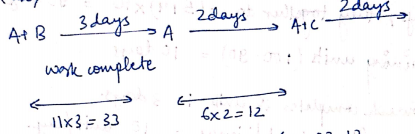 A+B 3days A 2days A+C 2days
work complete
11x3 = 33 6x2=12